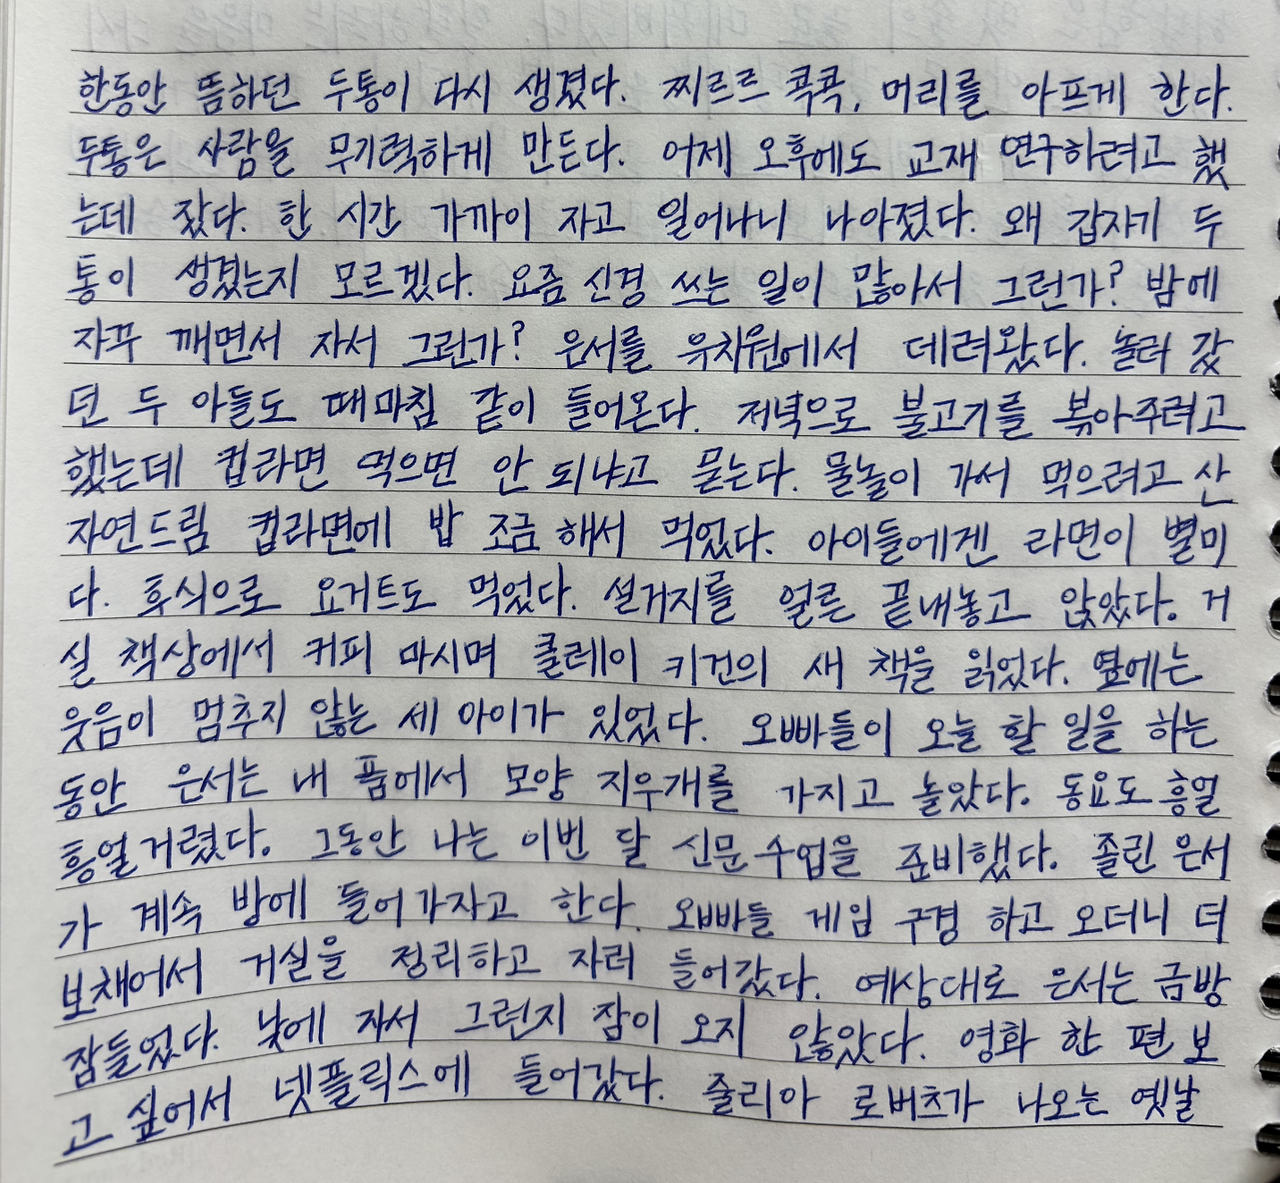 한동안 뜸하던 두통이 다시 생겼다. 찌르르 콕콕, 머리를 아프게 한다.
두통은 사람을 무기력하게 만든다. 어제 오후에도 교재 연구하려고 했
는데 잤다. 한 시간 가까이 자고 일어나니 나아졌다. 왜 갑자기 두
통이 생겼는지 모르겠다. 요즘 신경 쓰는 일이 많아서 그런가? 밤에
자꾸 깨면서 자서 그런가? 은서를 유치원에서 데려왔다. 놀러 갔
던 두 아들도 때마침 같이 들어온다. 저녁으로 불고기를 볶아주려고
했는데 컵라면 먹으면 안 되냐고 묻는다. 물놀이 가서 먹으려고 산
자연드림 컵라면에 밥 조금 해서 먹었다. 아이들에겐 라면이 별미
다. 후식으로 요거트도 먹었다. 설거지를 얼른 끝내놓고 앉았다. 거
실 책상에서 커피 마시며 클레이 키건의 새 책을 읽었다. 옆에는
웃음이 멈추지 않는 세 아이가 있었다. 오빠들이 오늘 할 일을 하는
동안 은서는 내 품에서 모양 지우개를 가지고 놀았다. 동요도 흥얼
흥얼거렸다. 그동안 나는 이번 달 신문 수업을 준비했다. 졸린 은서
가 계속 방에 들어가자고 한다. 오빠들 게임 구경 하고 오더니 더
보채어서 거실을 정리하고 자러 들어갔다. 예상대로 은서는 금방
잠들었다. 낮에 자서 그런지 잠이 오지 않았다. 영화 한 편 보
고 싶어서 넷플릭스에 들어갔다. 줄리아 로버츠가 나오는 옛날